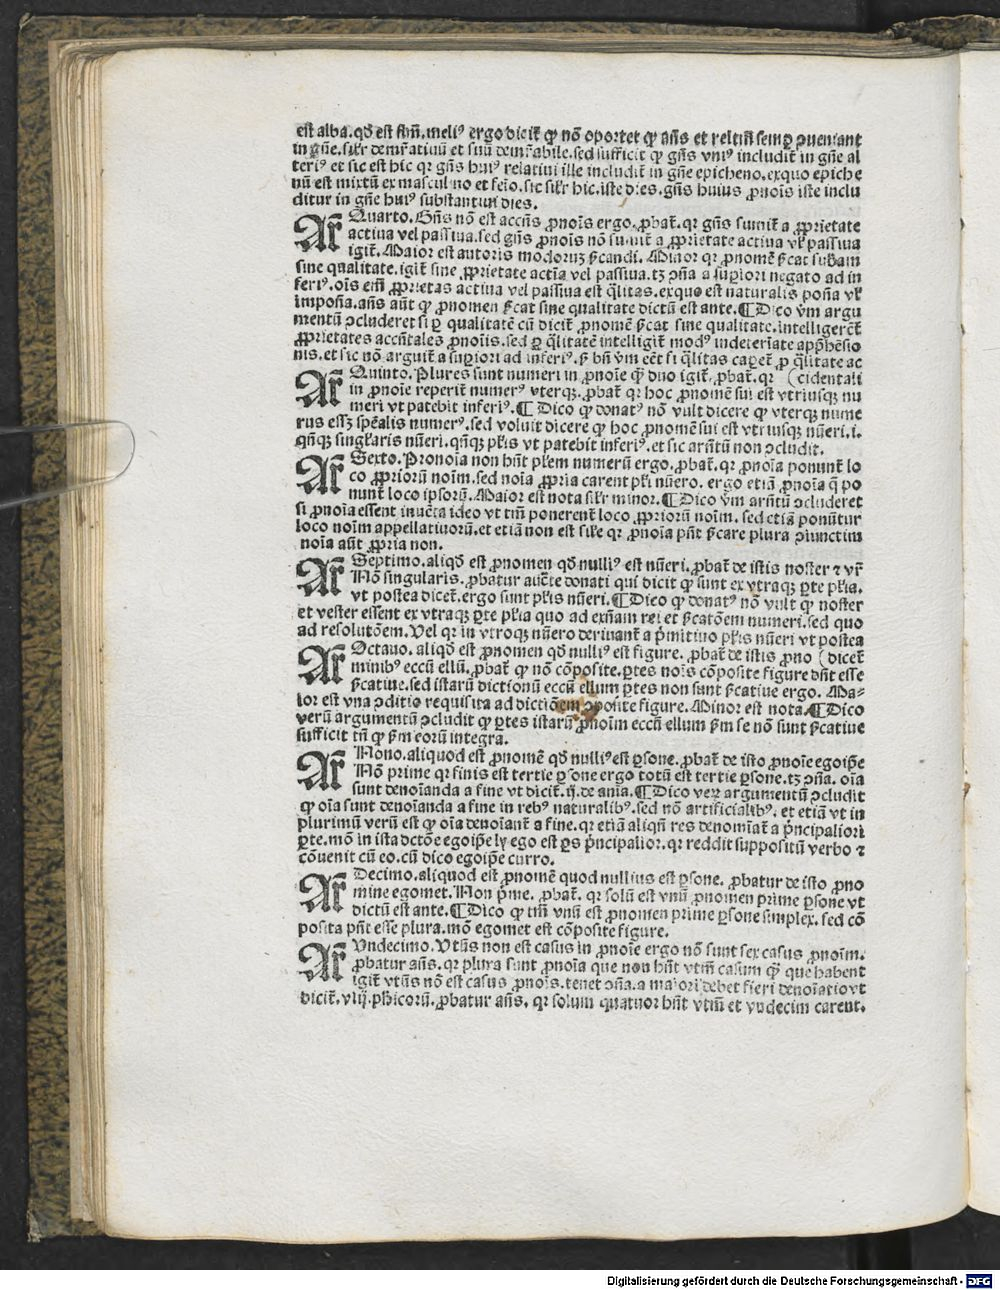 est alba. qd̄ est fm̄. meliꝰ ergo dicit̄ ꝙ nō oportet ꝙ an̄s et reltm̄ semꝑ ꝯueniant
in gn̄e. silr̄ demr̄atiuū et suū demr̄abile. sed sufficit ꝙ gn̄s vniꝰ includit̄ in gn̄e al
teriꝰ et sic est hic qr gn̄s huiꝰ relatiui ille includit̄ in gn̄e epicheno. exquo epiche
nū est mixtū ex masculino et feīo. sic silr̄ hic. iste dies. gn̄s huius ꝓnoīs iste inclu
ditur in gn̄e huiꝰ substantiui dies.
Ar̄ Quarto. Gn̄s nō est accn̄s ꝓnoīs ergo. ꝓbat̄. qr gn̄s sumit̄ a ꝓprietate
actiua vel passiua. sed gn̄s ꝓnoīs nō sumit̄ a ꝓprietate actiua vl̄ passiua
igit̄. Maior est autoris modorum scandi. Minor qr ꝓnomē ſcat subam
sine qualitate. igit̄ sine ꝓprietate actīa vel passiua. tꝫ ꝯn̄a a suꝑiori negato ad in
feriꝰ. oīs em̄ ꝓprietas actiua vel passiua est qlitas. exquo est naturalis pon̄a vl̄
impon̄a. an̄s aūt ꝙ ꝓnomen ſcat sine qualitate dictū est ante. ¶ Dico ꝟm argu
mentū ꝯcluderet si ꝑ qualitatē cū dicit̄ ꝓnomē ſcat sine qualitate. intelligerēt̄
ꝓprietates accn̄tales ꝓnoīis. sed ꝑ qlitatē intelligit̄ modꝰ indeterīate apphēsio
nis. et sic nō arguit̄ a suꝑiori ad inferiꝰ. ſ bn̄ ꝟm eēt si qlitas caꝑet̄ ꝓ qlitate ac
Ar̄ Quinto. Plures sunt numeri in ꝓnoīe ꝙ duo igit̄. ꝓbat̄. qr (cidentali
in ꝓnoīe reperit̄ numerꝰ vterqꝫ. ꝓbat̄ qr hoc ꝓnomē sui est vtriusqꝫ nu
meri vt patebit inferiꝰ. ¶ Dico ꝙ donatꝰ nō vult dicere ꝙ vterqꝫ nume
rus essꝫ spēalis numerꝰ. sed voluit dicere ꝙ hoc ꝓnomē sui est vtriusqꝫ nūeri. i.
qn̄qꝫ singlaris nūeri. qn̄qꝫ pl̄is vt patebit inferiꝰ. et sic arn̄tū non ꝯcludit.
Ar̄ Sexto. Pronoīa non hn̄t pl̄em numerū ergo. ꝓbat̄. qr ꝓnoīa ponunt̄ lo
co ꝓpriorū noīm. sed noīa ꝓpria carent pl̄i nūero. ergo etiā ꝓnoīa q̄ po
nunt̄ loco ipsorū. Maior est nota silr̄ minor. ¶ Dico ꝟm arn̄tū ꝯcluderet
si ꝓnoīa essent inuēta ideo vt tm̄ ponerent̄ loco ꝓpriorū noīm. sed etiā ponūtur
loco noīm appellatiuorū. et etiā non est sile qr ꝓnoīa pn̄t ſcare plura ꝯiunctim
noīa aūt ꝓpria non.
Ar̄ Septimo. aliqd̄ est ꝓnomen qd̄ nulliꝰ est nūeri. ꝓbat̄ de istis noster ⁊ vr̄
Nō singularis. ꝓbatur auc̄te donati qui dicit ꝙ sunt ex vtraqꝫ ꝑte pl̄ia.
vt postea dicet̄. ergo sunt pl̄is nūeri. ¶ Dico ꝙ donatꝰ nō vult ꝙ noster
et vester essent ex vtraqꝫ ꝑte pl̄ia quo ad exn̄am rei et ſcatōem numeri. sed quo
ad resolutōem. Vel qr in vtroqꝫ nūero deriuant̄ a pͥmitiuo pl̄is nūeri vt postea
Ar̄ Octauo. aliqd̄ est ꝓnomen qd̄ nulliꝰ est figure. ꝓbat̄ de istis ꝓno (dicet̄
minibꝰ eccū ellū. ꝓbat̄ ꝙ nō cōposite. ꝑtes noīs cōposite figure dn̄t esse
ſcatiue. sed istarū dictionū eccū ellum ꝑtes non sunt ſcatiue ergo. Ma-
ior est vna ꝯditio requisita ad dictiōem ꝯposite figure. Minor est nota. ¶ Dico
verū argumentū ꝯcludit ꝙ ꝑtes istarū ꝓnoīm eccū ellum ſm se nō sunt ſcatiue
sufficit tn̄ ꝙ ſm eorū integra.
Ar̄ Nono. aliquod est ꝓnomē qd̄ nulliꝰ est ꝑsone. ꝓbat̄ de isto ꝓnoīe egoiꝑe
Nō prime qr finis est tertie ꝑsone ergo totū est tertie ꝑsone. tꝫ ꝯn̄a. oīa
sunt denoīanda a fine vt dicit̄. ij. de anīa. ¶ Dico verꝫ argumentū ꝯcludit
ꝙ oīa sunt denoīanda a fine in rebꝰ naturalibꝰ. sed nō artificialibꝰ. et etiā vt in
plurimū verū est ꝙ oīa denoīant̄ a fine. qr etiā aliqn̄ res denomīat̄ a pͥncipaliori
ꝑte. mō in ista dctōe egoiꝑe ly ego est ꝑs pͥncipalior. qr reddit suppositū verbo ⁊
cōuenit cū eo. cū dico egoiꝑe curro.
Ar̄ Decimo. aliquod est ꝓnomē quod nullius est ꝑsone. ꝓbatur de isto ꝓno
mine egomet. Non pͥme. ꝓbat̄. qr solū est vnū ꝓnomen prime ꝑsone vt
dictū est ante. ¶ Dico ꝙ tm̄ vnū est ꝓnomen prime ꝑsone simplex. sed cō
posita pn̄t esse plura. mō egomet est cōposite figure.
Ar̄ Vndecimo. Vtūs non est casus in ꝓnoīe ergo nō sunt sex casus ꝓnoīm.
ꝓbatur an̄s. qr plura sunt ꝓnoīa que non hn̄t vtm̄ casum ꝙ que habent
igit̄ vtūs nō est casus ꝓnoīs. tenet ꝯn̄a. a maiori debet fieri denoīatio vt
dicit̄. viij. phīcorū. ꝓbatur an̄s. qr solum quatuor hn̄t vtm̄ et vndecim carent.
Digitalisierung gefördert durch die Deutsche Forschungsgemeinschaft - DFG